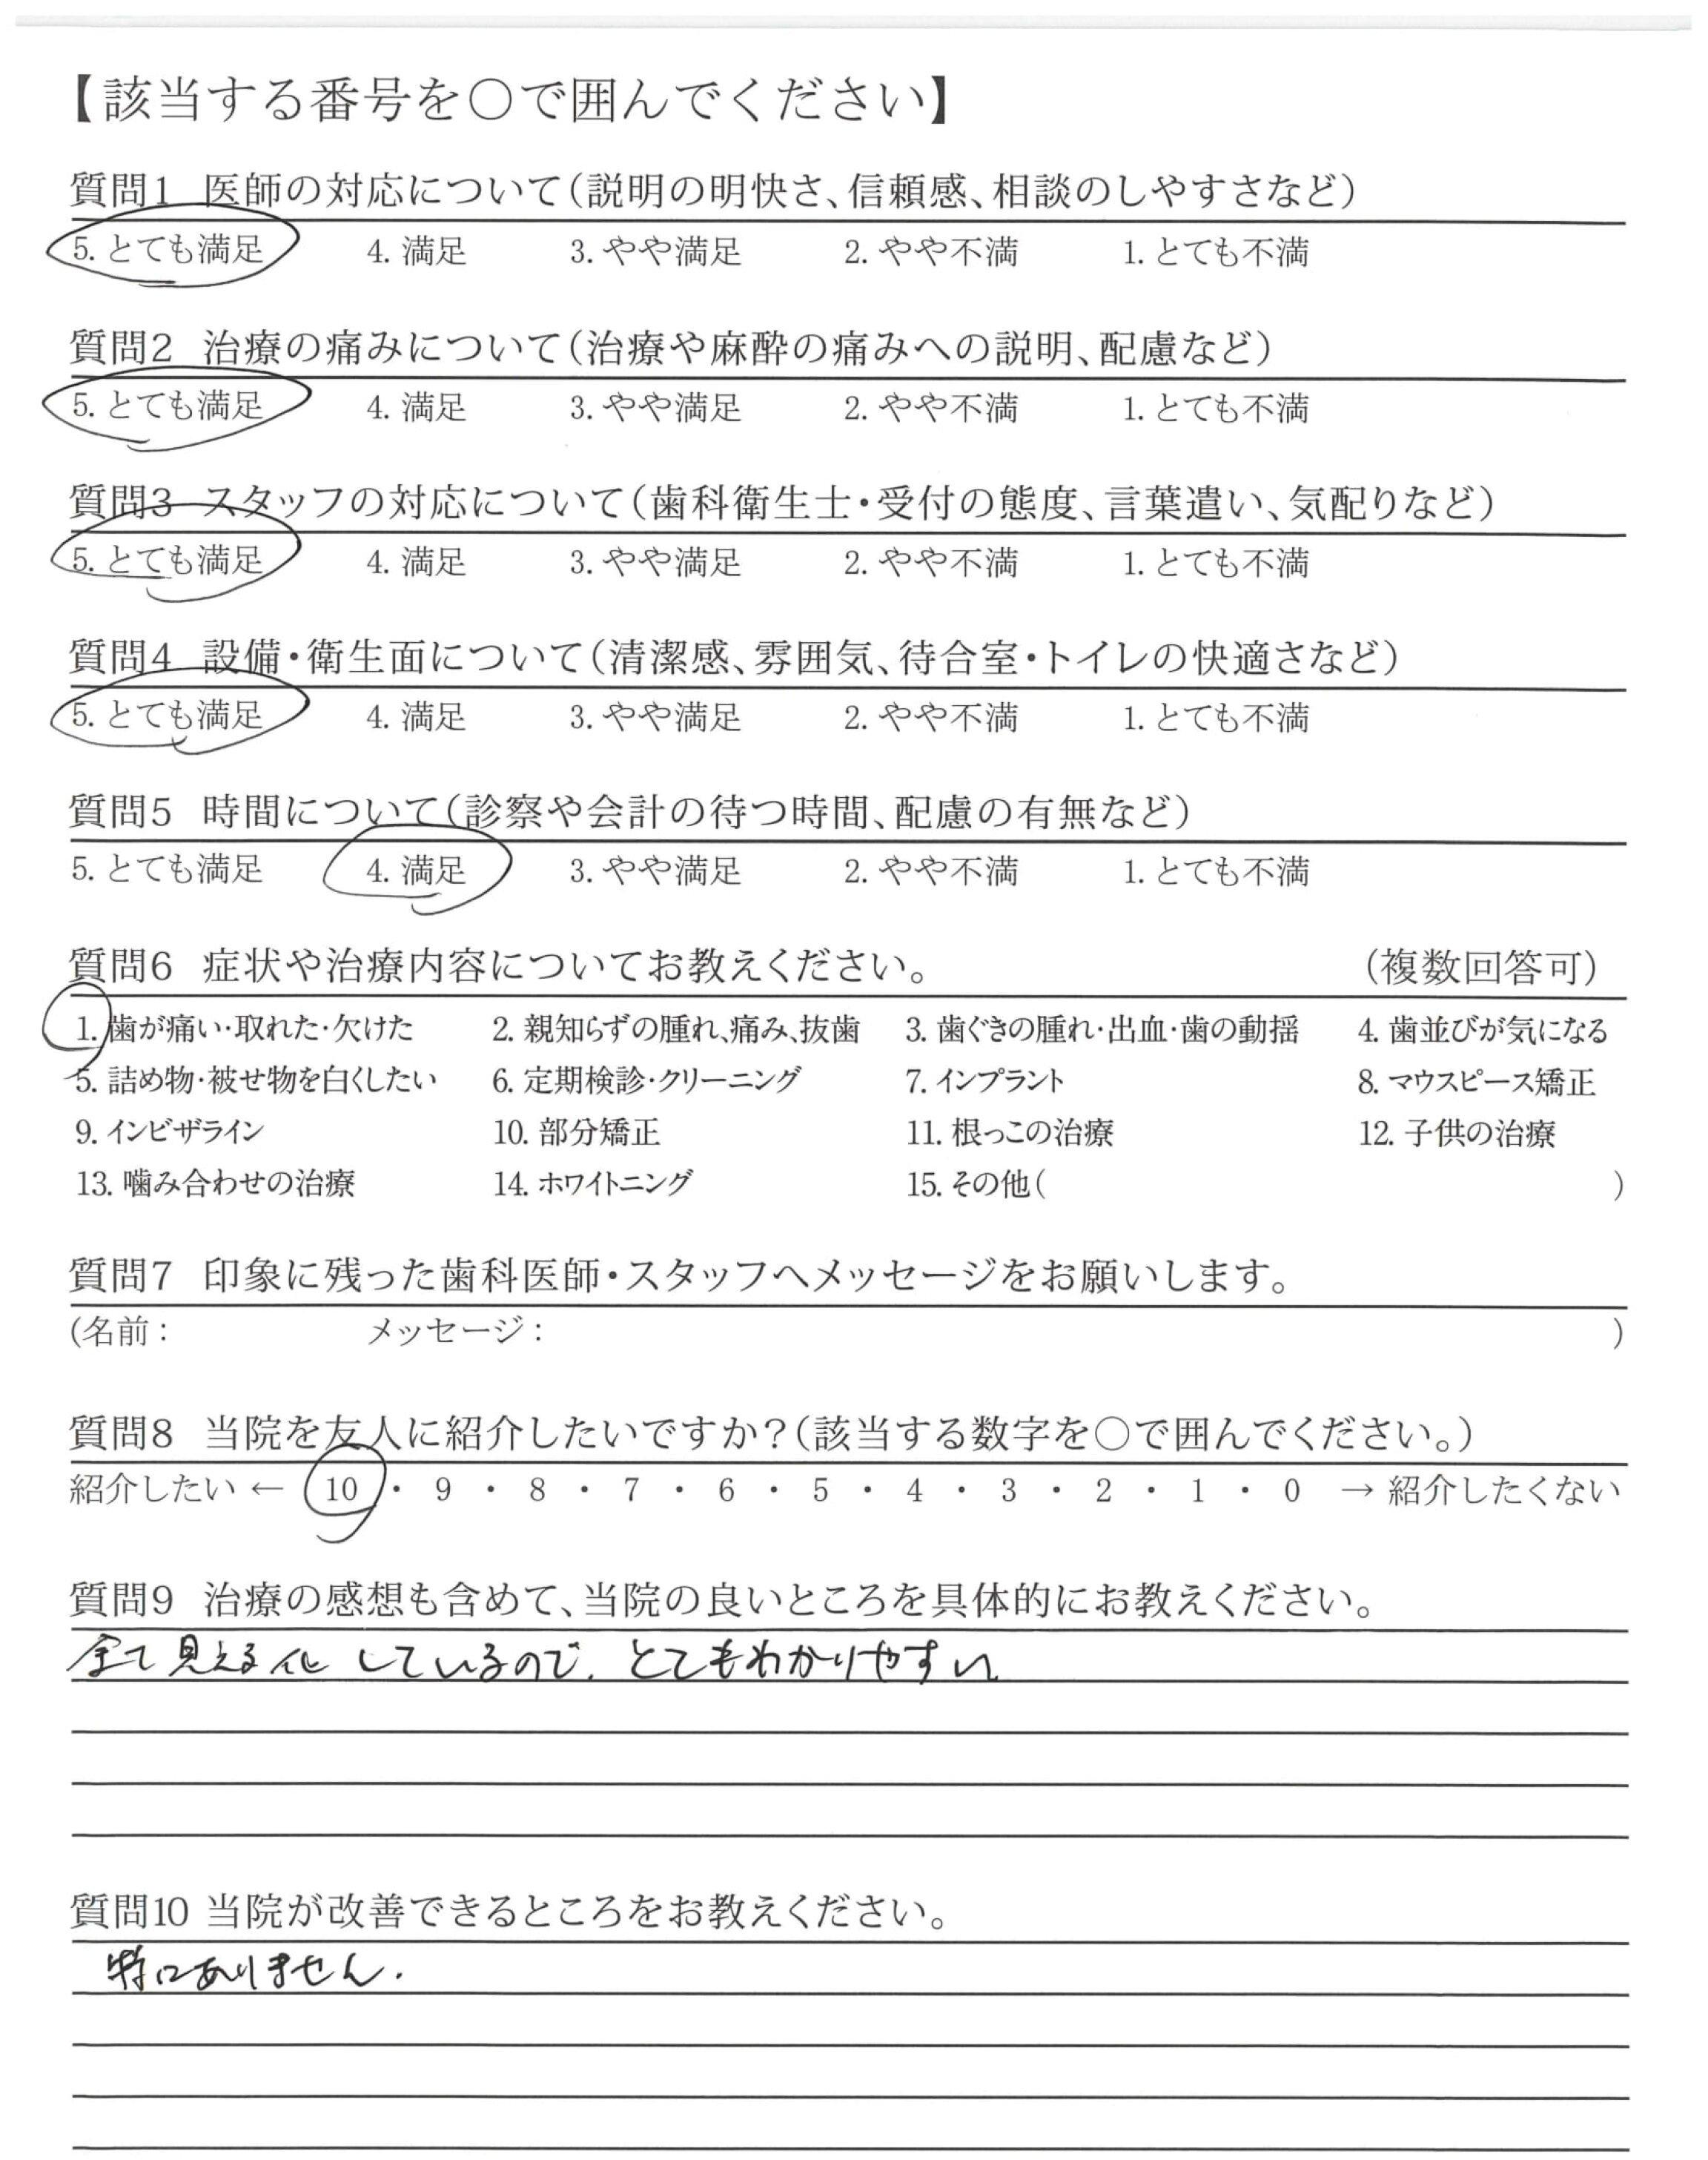 【該当する番号を○で囲んでください】
質問1 医師の対応について(説明の明快さ、信頼感、相談のしやすさなど)
5. とても満足 4. 満足 3. やや満足 2. やや不満 1. とても不満
質問2 治療の痛みについて(治療や麻酔の痛みへの説明、配慮など)
5. とても満足 4. 満足 3. やや満足 2. やや不満 1. とても不満
質問3 スタッフの対応について(歯科衛生士・受付の態度、言葉遣い、気配りなど)
5. とても満足 4. 満足 3. やや満足 2. やや不満 1. とても不満
質問4 設備・衛生面について(清潔感、雰囲気、待合室・トイレの快適さなど)
5. とても満足 4. 満足 3. やや満足 2. やや不満 1. とても不満
質問5 時間について(診察や会計の待つ時間、配慮の有無など)
5. とても満足 4. 満足 3. やや満足 2. やや不満 1. とても不満
質問6 症状や治療内容についてお教えください。 (複数回答可)
1. 歯が痛い・取れた・欠けた 2. 親知らずの腫れ、痛み、抜歯 3. 歯ぐきの腫れ・出血・歯の動揺 4. 歯並びが気になる
5. 詰め物・被せ物を白くしたい 6. 定期検診・クリーニング 7. インプラント 8. マウスピース矯正
9. インビザライン 10. 部分矯正 11. 根っこの治療 12. 子供の治療
13. 噛み合わせの治療 14. ホワイトニング 15. その他( )
質問7 印象に残った歯科医師・スタッフへメッセージをお願いします。
(名前: メッセージ: )
質問8 当院を友人に紹介したいですか?(該当する数字を○で囲んでください。)
紹介したい ← 10 ・ 9 ・ 8 ・ 7 ・ 6 ・ 5 ・ 4 ・ 3 ・ 2 ・ 1 ・ 0 → 紹介したくない
質問9 治療の感想も含めて、当院の良いところを具体的にお教えください。
全て見える化しているので、とてもわかりやすい
質問10 当院が改善できるところをお教えください。
特にありません.